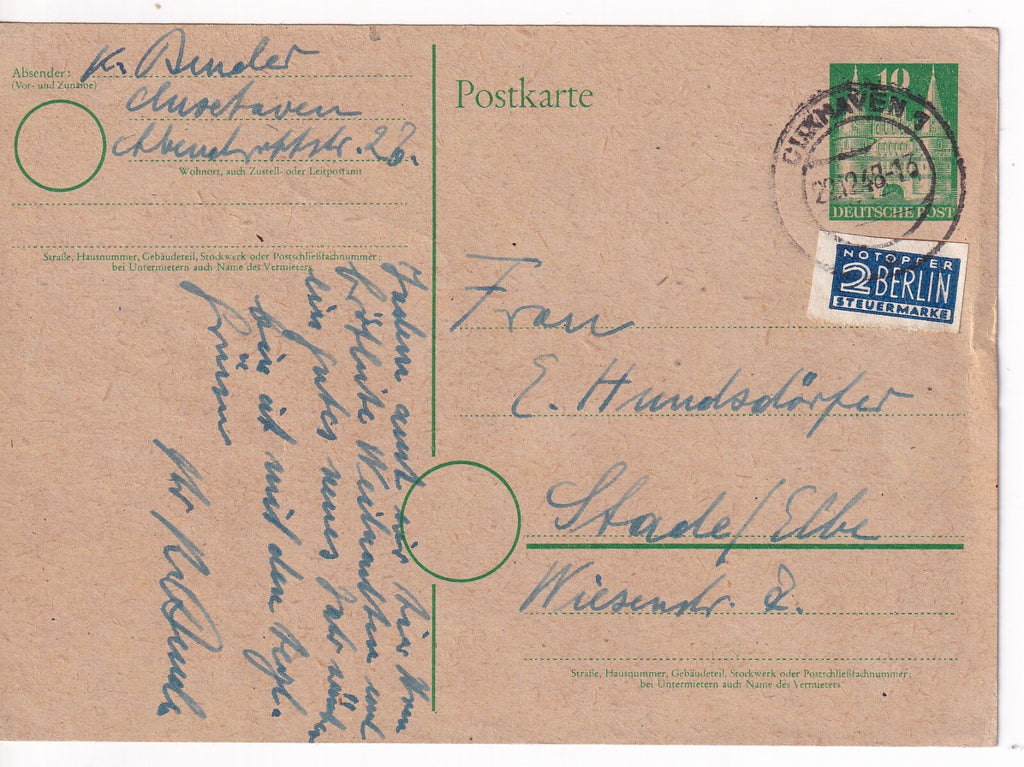 Absender: K. Binder
(Vor- und Zuname)
Cuxhaven
Wohnort, auch Zustell- oder Leitpostamt
Straße, Hausnummer, Gebäudeteil, Stockwerk oder Postschließfachnummer;
bei Untermietern auch Name des Vermieters
Postkarte
10
DEUTSCHE POST
CUXHAVEN 1
22.12.48-13
NOTOPFER
2 BERLIN
STEUERMARKE
Frau
E. Hundsdörfer
Stade/Elbe
Wiesenstr. 2.
Straße, Hausnummer, Gebäudeteil, Stockwerk oder Postschließfachnummer;
bei Untermietern auch Name des Vermieters
Ihnen
Weihnachten und
ein gutes neues Jahr
bin ich mit den
Grüßen
Ihr